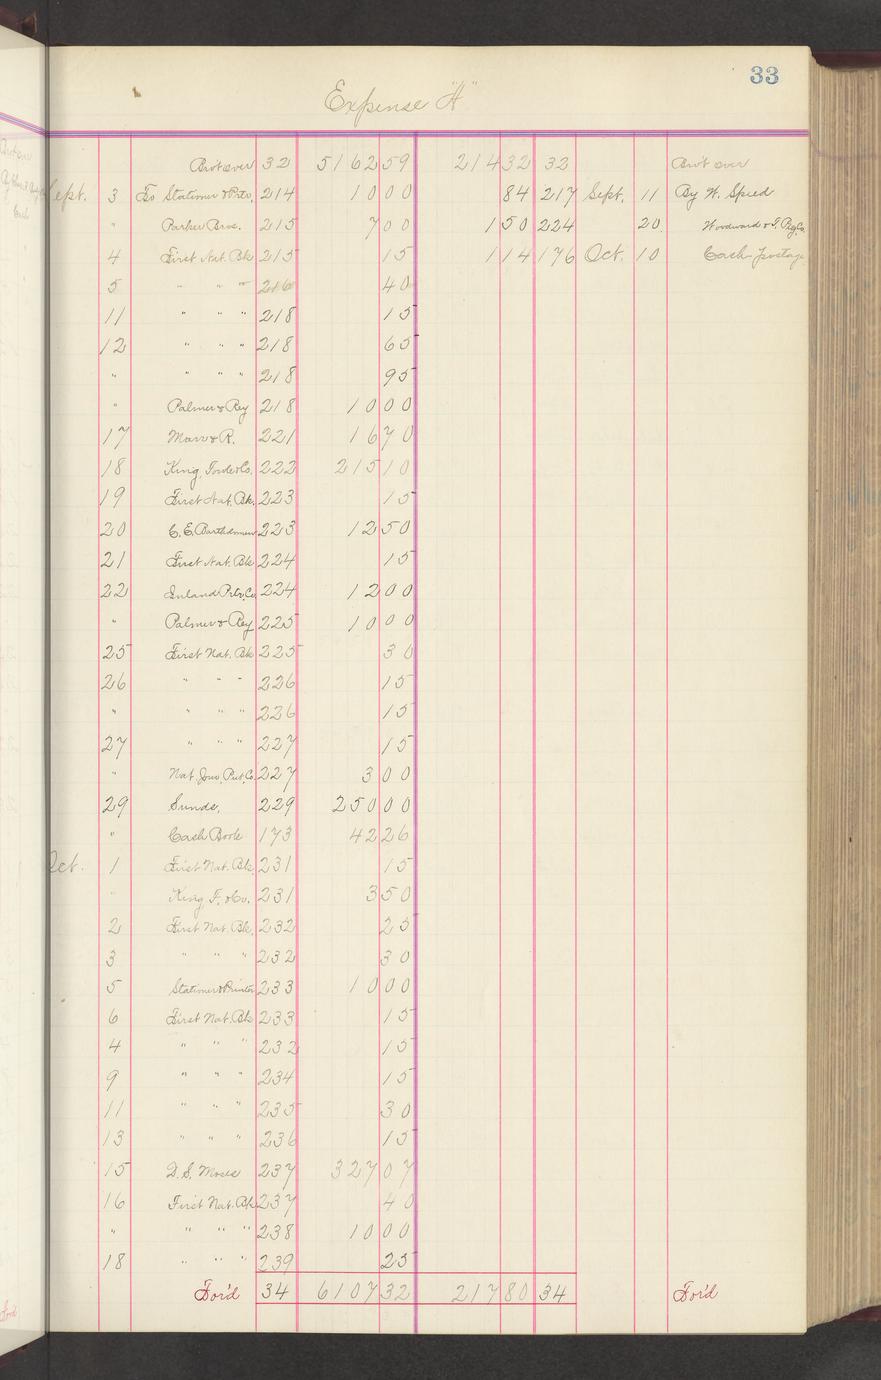 33
Expense "A"
Bro't over 32 5162 59 214 32 32 Bro't over
Sept. 3 To Stationer & Prtr. 214 10 00 84 217 Sept. 11 By W. Speed
" Parker Bros. 215 7 00 1 50 224 20 Woodward & T. Prg. Co.
4 First Nat. Bk 215 15 1 14 176 Oct. 10 Cash postage
5 " " " 216 40
11 " " " 218 15
12 " " " 218 65
" " " " 218 95
" Palmer & Rey 218 10 00
17 Marr & R. 221 16 70
18 King, & Co. 222 215 10
19 First Nat. Bk. 223 15
20 C. E. Bartholomew 223 12 50
21 First Nat. Bk 224 15
22 Inland Co. 224 12 00
" Palmer & Rey 225 10 00
25 First Nat. Bk 225 30
26 " " " 226 15
" " " " 226 15
27 " " " 227 15
" Nat. Jour. Co. 227 3 00
29 Sunds. 229 250 00
" Cash Book 173 42 26
Oct. 1 First Nat. Bk. 231 15
" King F. & Co. 231 3 50
2 First Nat. Bk. 232 25
3 " " " 232 30
5 Stationer & Printer 233 10 00
6 First Nat. Bk 233 15
4 " " " 232 15
9 " " " 234 15
11 " " " 235 30
13 " " " 236 15
15 D. S. 237 327 07
16 First Nat. Bk. 237 40
" " " " 238 10 00
18 " " " 239 25
For'd 34 6107 32 217 80 34 For'd